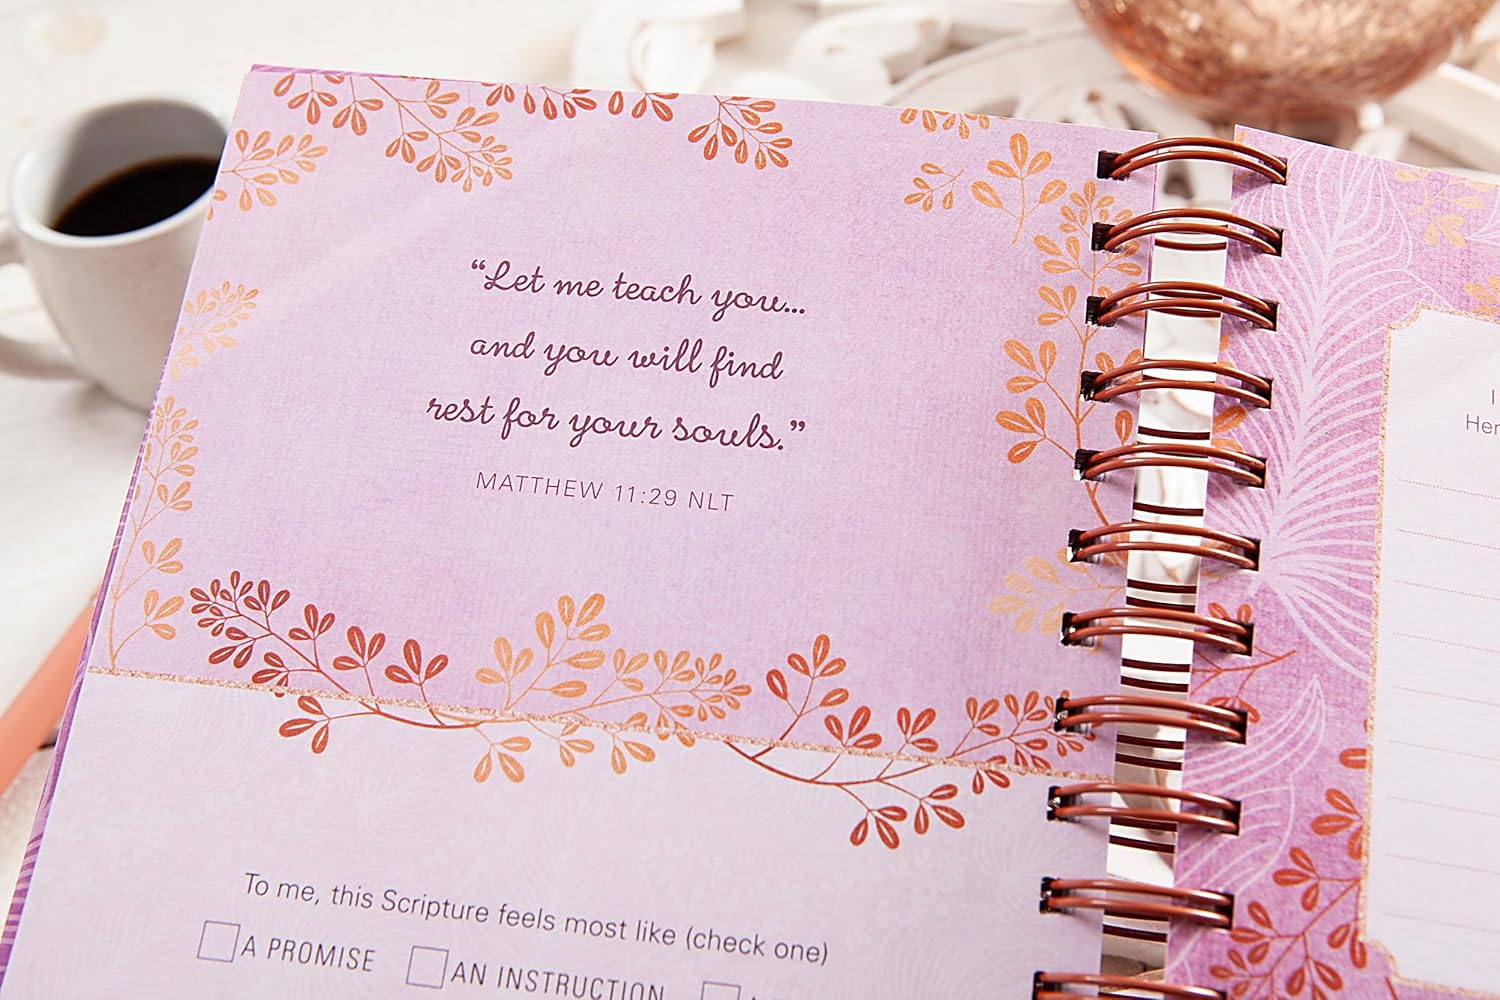 “Let me teach you...
and you will find
rest for your souls.”
MATTHEW 11:29 NLT
To me, this Scripture feels most like (check one)
A PROMISE AN INSTRUCTION
I
Her